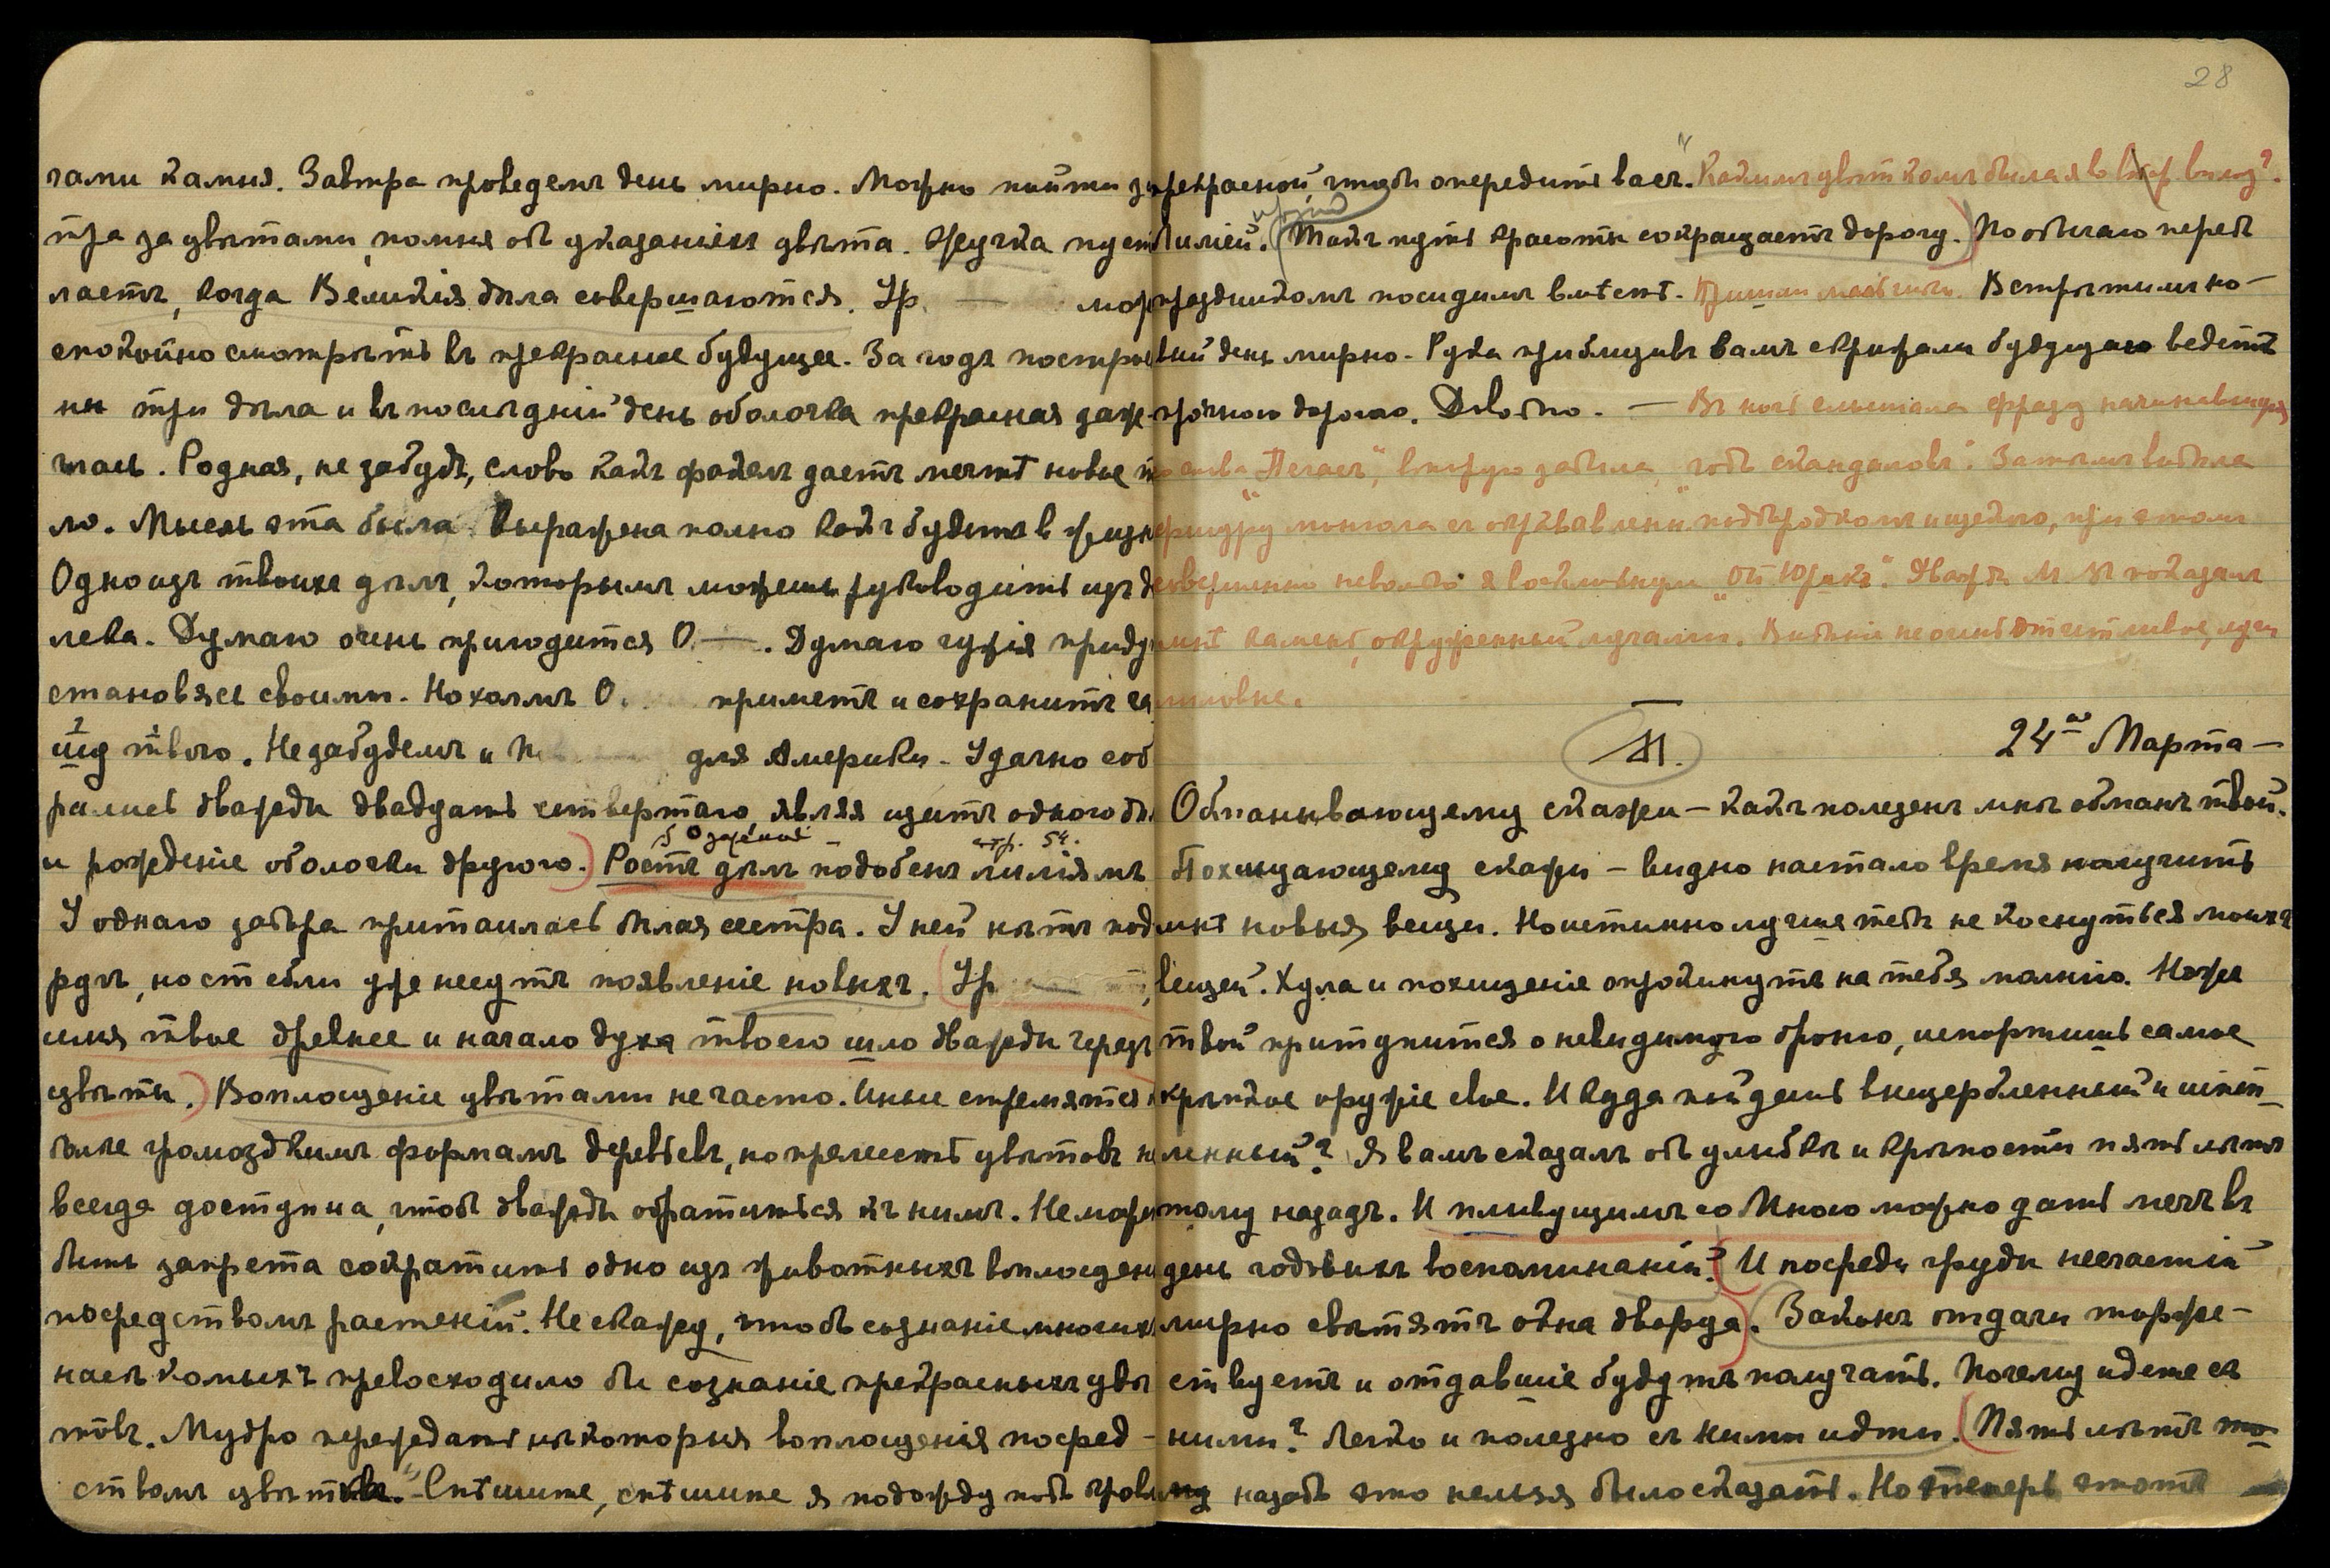 чами камня. Завтра проведемъ день мирно. Можно пойти зав
тра за цвѣтами, помня объ указанiяхъ цвѣта. Жучка пусть
лаетъ, когда Великiя дѣла совершаются. Ур. мож
спокойно смотрѣть въ прекрасное будущее. За годъ построе
ны три дѣла и въ послѣднiй день оболочка прекрасная заро
ась. Родная, не забудь, слово какъ факелъ даетъ мечтѣ новое
ло. Мысль эта была выражена полно какъ будете в
Одно изъ твоихъ дѣлъ, которымъ можешь руководить изъ
лека. Думаю очень пригодится О. —. Думаю чужiя приду
становясь своими. Но холмъ О. приметъ и сохранитъ ча
шу твою. Не забудемъ и для Америки. Удачно соб
рались дважды двадцать четвертаго, являя щитъ одного дѣ
и рожденiе оболочки другого.) Ростъ дѣлъ подобенъ лилiямъ
Озаренiе — стр. 54.
У одного забора притаилась бѣлая сестра. У ней нѣтъ под
ругъ, но стебли уже несутъ появленiе новыхъ. (Ур
имя твое древнее и начало духа твоего шло дважды черезъ
цвѣты.) Воплощенiе цвѣтами не часто. Иные стремятся к
болѣе громоздкимъ формамъ деревьевъ, но прелесть цвѣтовъ не
всегда доступна, чтобъ дважды обратиться къ нимъ. Не може
быть запрета сократить одно изъ животныхъ воплощен
посредствомъ растенiй. Не скажу, чтобъ сознанiе многихъ
насѣкомыхъ превосходило бы сознанiе прекрасныхъ цвѣ
товъ. Мудро переждать нѣкоторыя воплощенiя посред-
ствомъ цвѣтовъ. Спѣшите, спѣшите я подожду подъ кров
28
прекрасной, чтобъ опередить васъ." Какимъ цвѣткомъ была я во воплощ?
Лилiей. (Такъ путь красоты сокращаетъ дорогу.) По обычаю передъ
праздникомъ посидимъ вмѣстѣ. Встрѣтимъ но-
вый день мирно. Рука приблизивъ вамъ скрижали будущаго ведетъ
прочною дорогою. Довольно. — Въ ночь слышала фразу начинавшуюся
слова "Пегасъ", вторую забыла, "годъ скандаловъ". Затѣмъ видѣла
фигуру монгола съ окровавленн. подбородкомъ и щекою, при этомъ
совершенно невольно я воскликнула "Ой Юрикъ". Дважды М. М. показалъ
мнѣ камень, окруженный лучами. Видѣнiе не очень отчетливое, лучи
лиловые.
М. 24ᵒᵉ Марта —
Обманывающему скажи — какъ полезенъ мнѣ обманъ твой.
Похищающему скажи — видно настало время получить
мнѣ новыя вещи. Но истинно лучше тебѣ не коснуться моихъ
вещей. Хула и похищенiе опрокинутъ на тебя молнiю. Ножъ
твой притупится о невидимую броню, испортишь самое
крѣпкое оружiе свое. И куда пойдешь выщербленный и испеп-
ленный? Я вамъ сказалъ объ улыбкѣ и крѣпости пять лѣтъ
тому назадъ. И плывущимъ со Мною можно дать мечъ въ
день годовыхъ воспоминанiй? (И посреди груды несчастiй
мирно свѣтятъ окна дворца). Законъ отдачи торже-
ствуетъ и отдавшiе будутъ получать. Почему идете съ
ними? Легко и полезно съ ними идти. (Пять лѣтъ то-
му назадъ это нельзя было сказать. Но теперь этотъ